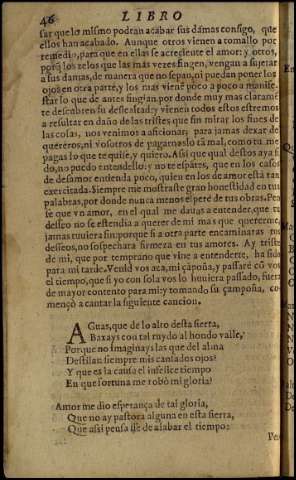 46 LIBRO
sar que lo mismo podran acabar sus damas consigo, que
ellos han acabado. Aunque otros vienen a tomallo por
remedio, para que en ellas se acreciente el amor: y otros,
porq̃ los zelos que las mas vezes fingen, vengan a sujetar
a sus damas, de manera que no sepan, ni puedan poner los
ojos en otra parte, y los mas viene poco a poco a manife-
star lo que de antes fingian, por donde muy mas claramẽ
te descubren su deslealtad: y vienen todos estos estremos
a resultar en daño de las tristes que sin mirar los fines de
las cosas, nos venimos a aficionar, para jamas dexar de
quereros, ni vosotros de pagarnoslo tã mal, como tu me
pagas lo que te quise, y quiero. Assi que qual destos aya si
do, no puedo entendello: y no te espãtes, que en los casos
de desamor entienda poco, quien en los de amor està tan
exercitada. Siempre me mostraste gran honestidad en tus
palabras, por donde nunca menos esperè de tus obras. Pen
sè que vn amor, en el qual me dauas a entender, que tu
desseo no se estendia a querer de mi mas que quererme,
jamas tuuiera fin: porque si a otra parte encaminaras tus
desseos, no sospechara firmeza en tus amores. Ay triste
de mi, que por temprano que vine a entenderte, ha sido
para mi tarde. Venid vos aca, mi çãpoña, y passarè cõ vos
el tiempo, que si yo con sola vos lo huuiera passado, fuera
de mayor contento para mi: y tomando su çampoña, co-
mençò a cantar la siguiente cancion.
AGuas, que de lo alto desta sierra,
Baxays con tal ruydo al hondo valle,
Porque no imaginays las que del alma
Destilan siempre mis cansados ojos?
Y que es la causa el infelice tiempo
En que fortuna me robò mi gloria?
Amor me dio esperança de tal gloria,
Que no ay pastora alguna en esta sierra,
Que assi pensa sse de alabar el tiempo: